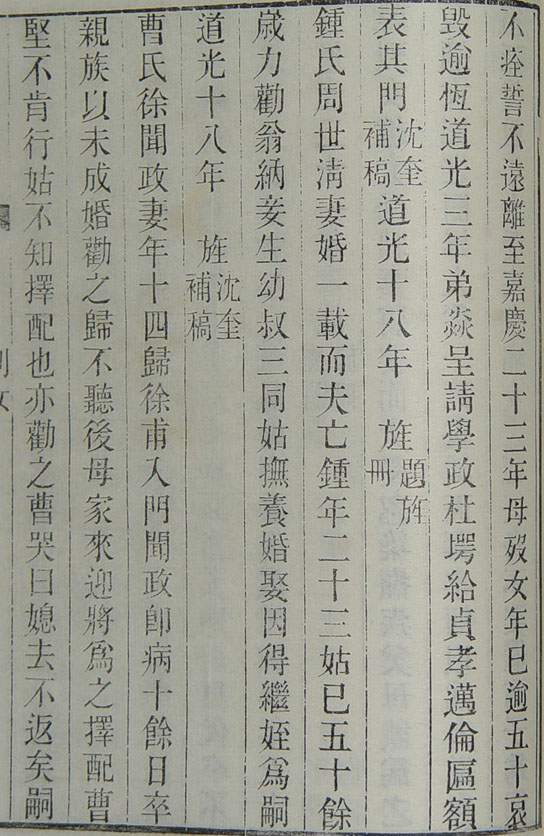 不痊誓不遠離至嘉慶二十三年母歿女年已逾五十哀
毀逾恆道光三年弟焱呈請學政杜堮給貞孝邁倫匾額
表其門沈奎補稿道光十八年　旌題旌冊
鍾氏周世淸妻婚一載而夫亡鍾年二十三姑已五十餘
歲力勸翁納妾生幼叔三同姑撫養婚娶因得繼姪爲嗣
道光十八年　旌沈奎補稿
曹氏徐聞政妻年十四歸徐甫入門聞政卽病十餘日卒
親族以未成婚勸之歸不聽後母家來迎將爲之擇配曹
堅不肯行姑不知擇配也亦勸之曹哭曰媳去不返矣嗣
列女